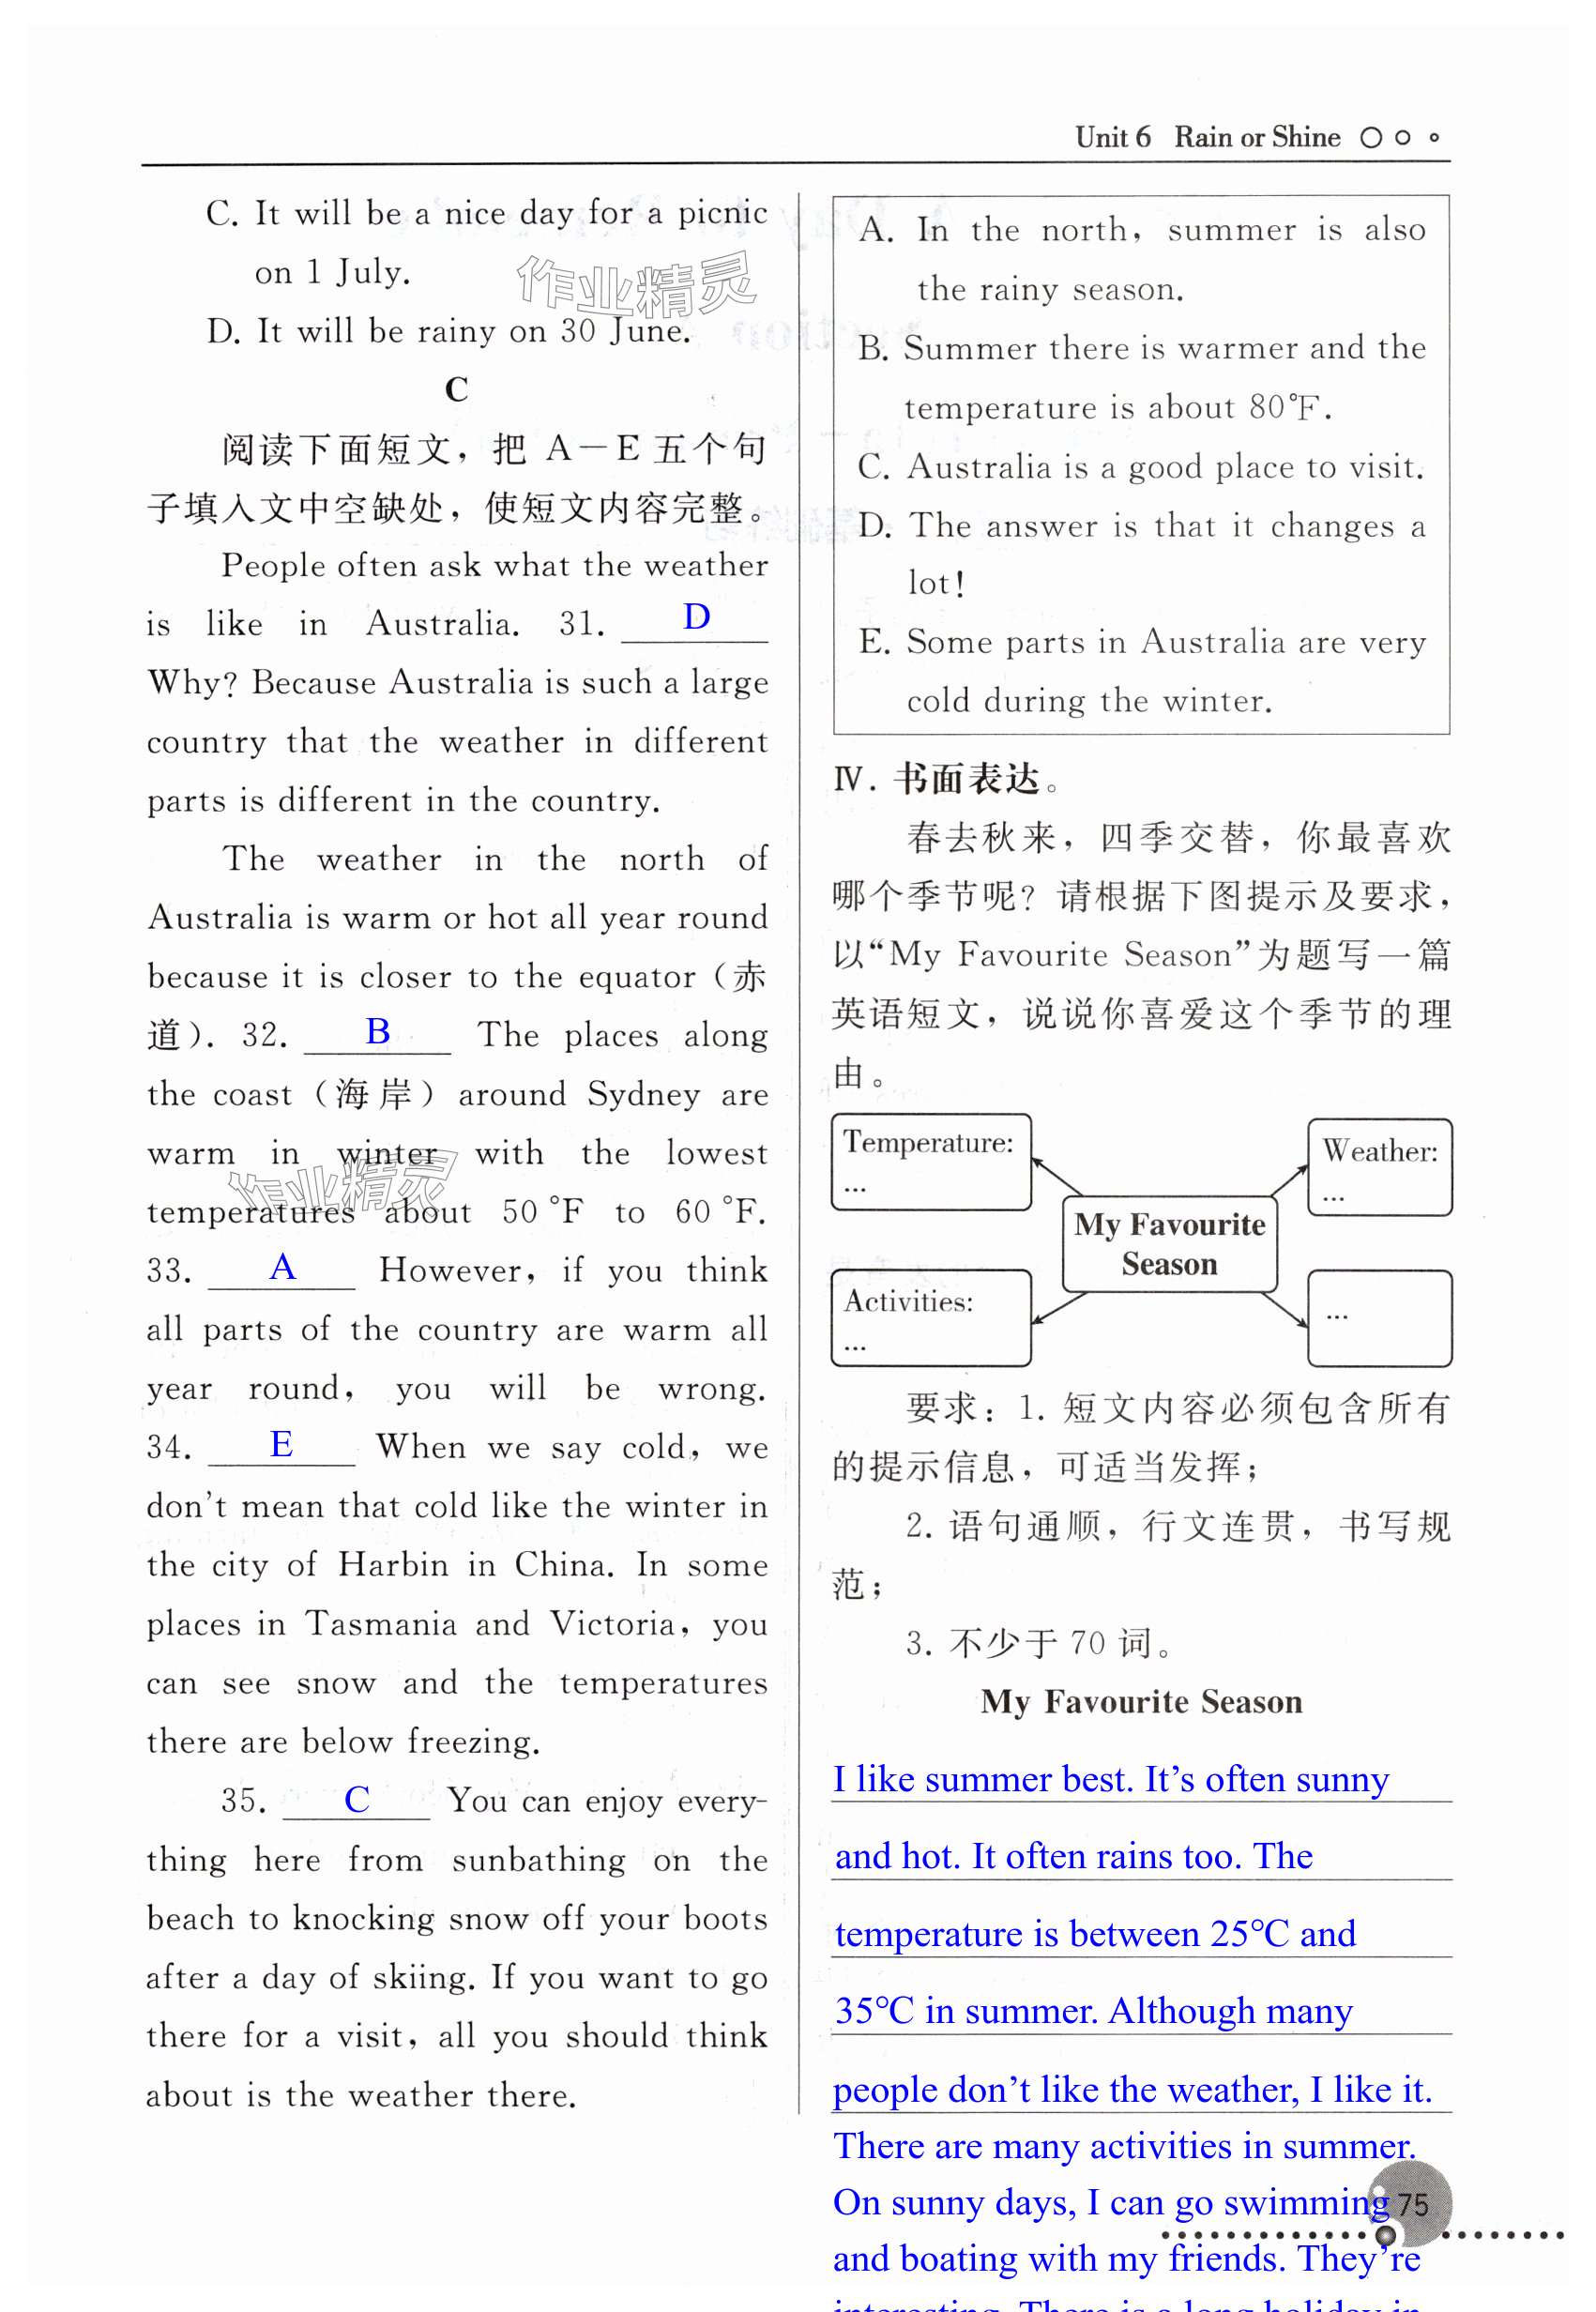 Unit 6 Rain or Shine
C. It will be a nice day for a picnic
on 1 July.
作业精灵
D. It will be rainy on 30 June.
C
阅读下面短文，把 A—E 五个句
子填入文中空缺处，使短文内容完整。
People often ask what the weather
is like in Australia. 31. D
Why? Because Australia is such a large
country that the weather in different
parts is different in the country.
The weather in the north of
Australia is warm or hot all year round
because it is closer to the equator (赤
道). 32. B The places along
the coast (海岸) around Sydney are
warm in winter with the lowest
作业精灵
temperatures about 50 °F to 60 °F.
33. A However, if you think
all parts of the country are warm all
year round, you will be wrong.
34. E When we say cold, we
don't mean that cold like the winter in
the city of Harbin in China. In some
places in Tasmania and Victoria, you
can see snow and the temperatures
there are below freezing.
35. C You can enjoy every-
thing here from sunbathing on the
beach to knocking snow off your boots
after a day of skiing. If you want to go
there for a visit, all you should think
about is the weather there.
A. In the north, summer is also
the rainy season.
B. Summer there is warmer and the
temperature is about 80°F.
C. Australia is a good place to visit.
D. The answer is that it changes a
lot!
E. Some parts in Australia are very
cold during the winter.
Ⅳ. 书面表达。
春去秋来，四季交替，你最喜欢
哪个季节呢？请根据下图提示及要求，
以“My Favourite Season”为题写一篇
英语短文，说说你喜爱这个季节的理
由。
Temperature:
...
Weather:
...
My Favourite
Season
Activities:
...
...
要求：1. 短文内容必须包含所有
的提示信息，可适当发挥；
2. 语句通顺，行文连贯，书写规
范；
3. 不少于 70 词。
My Favourite Season
I like summer best. It’s often sunny
and hot. It often rains too. The
temperature is between 25℃ and
35℃ in summer. Although many
people don’t like the weather, I like it.
There are many activities in summer.
On sunny days, I can go swimming
75
and boating with my friends. They’re
interesting. There is a long holiday in